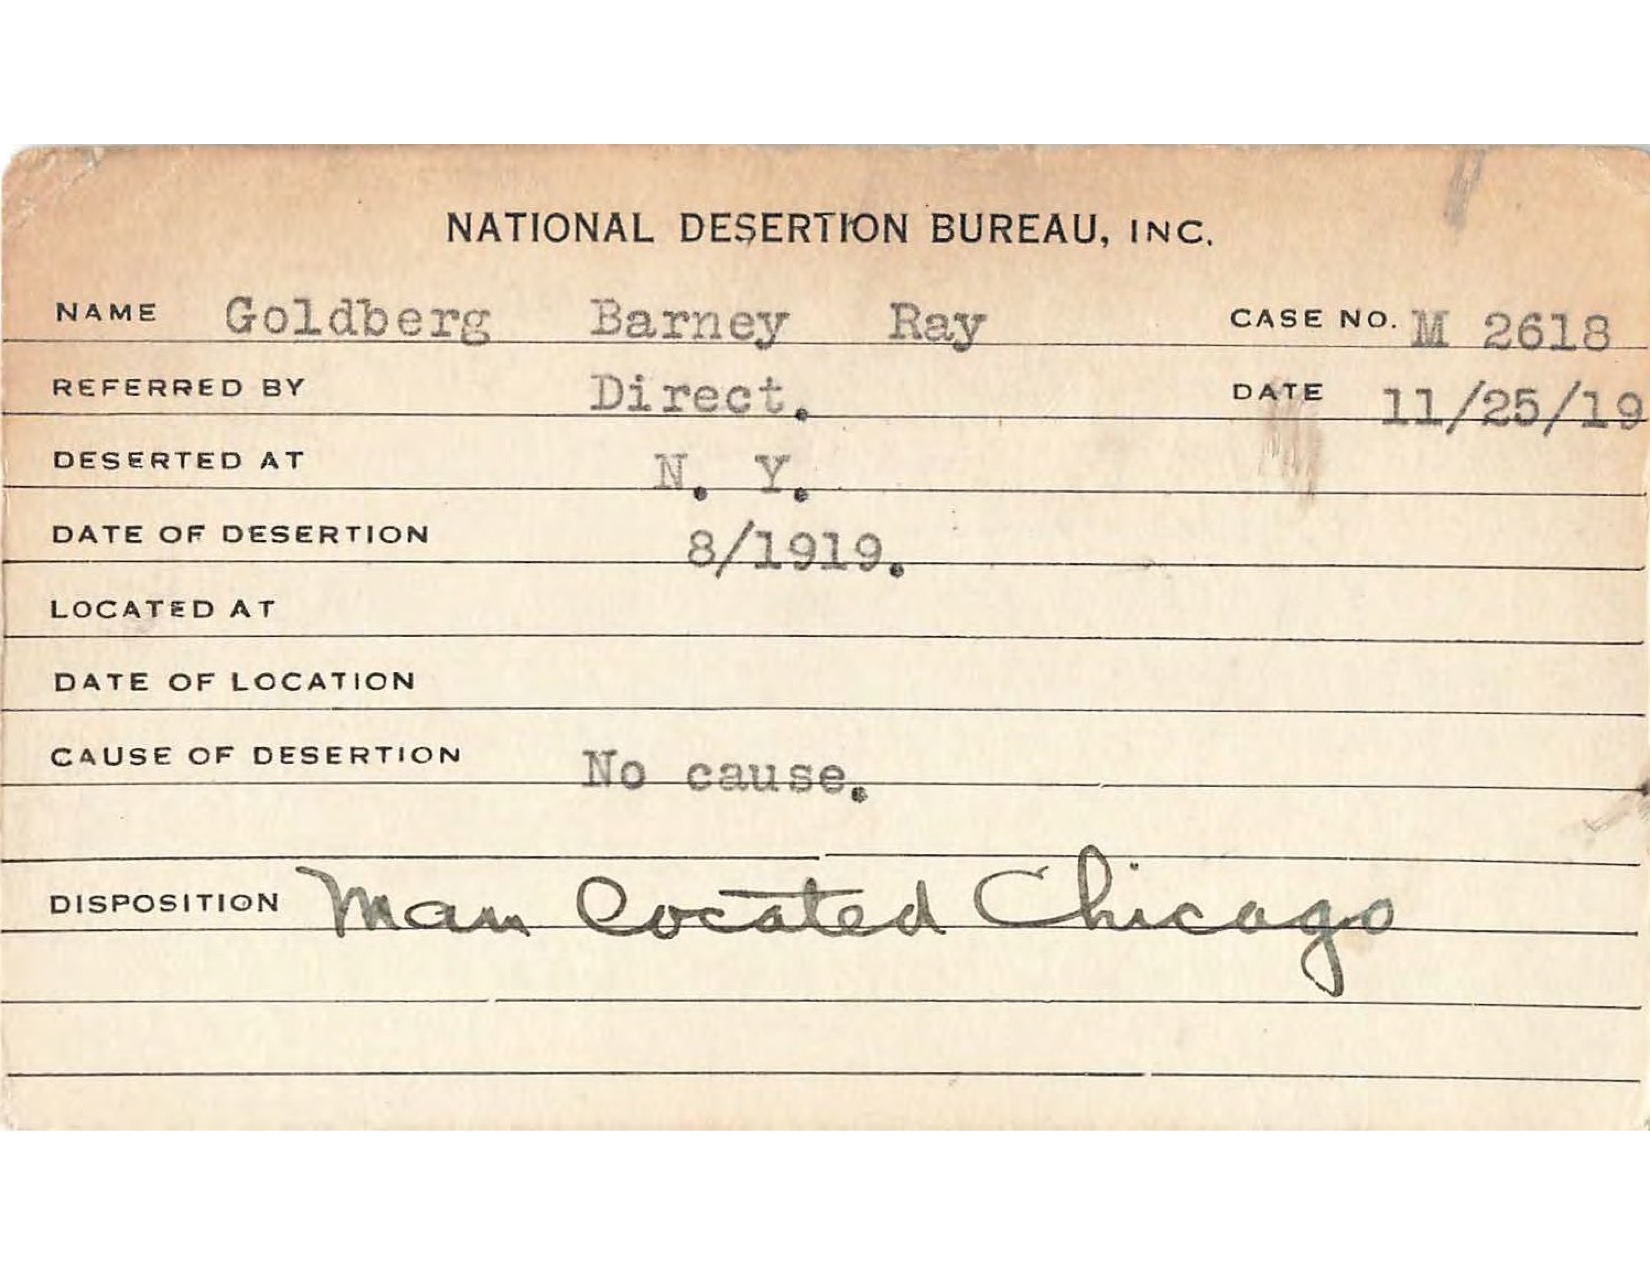 NATIONAL DESERTION BUREAU, INC.
NAME Goldberg Barney Ray CASE NO. M 2618
REFERRED BY Direct. DATE 11/25/19
DESERTED AT N. Y.
DATE OF DESERTION 8/1919.
LOCATED AT
DATE OF LOCATION
CAUSE OF DESERTION No cause.
DISPOSITION Man located Chicago